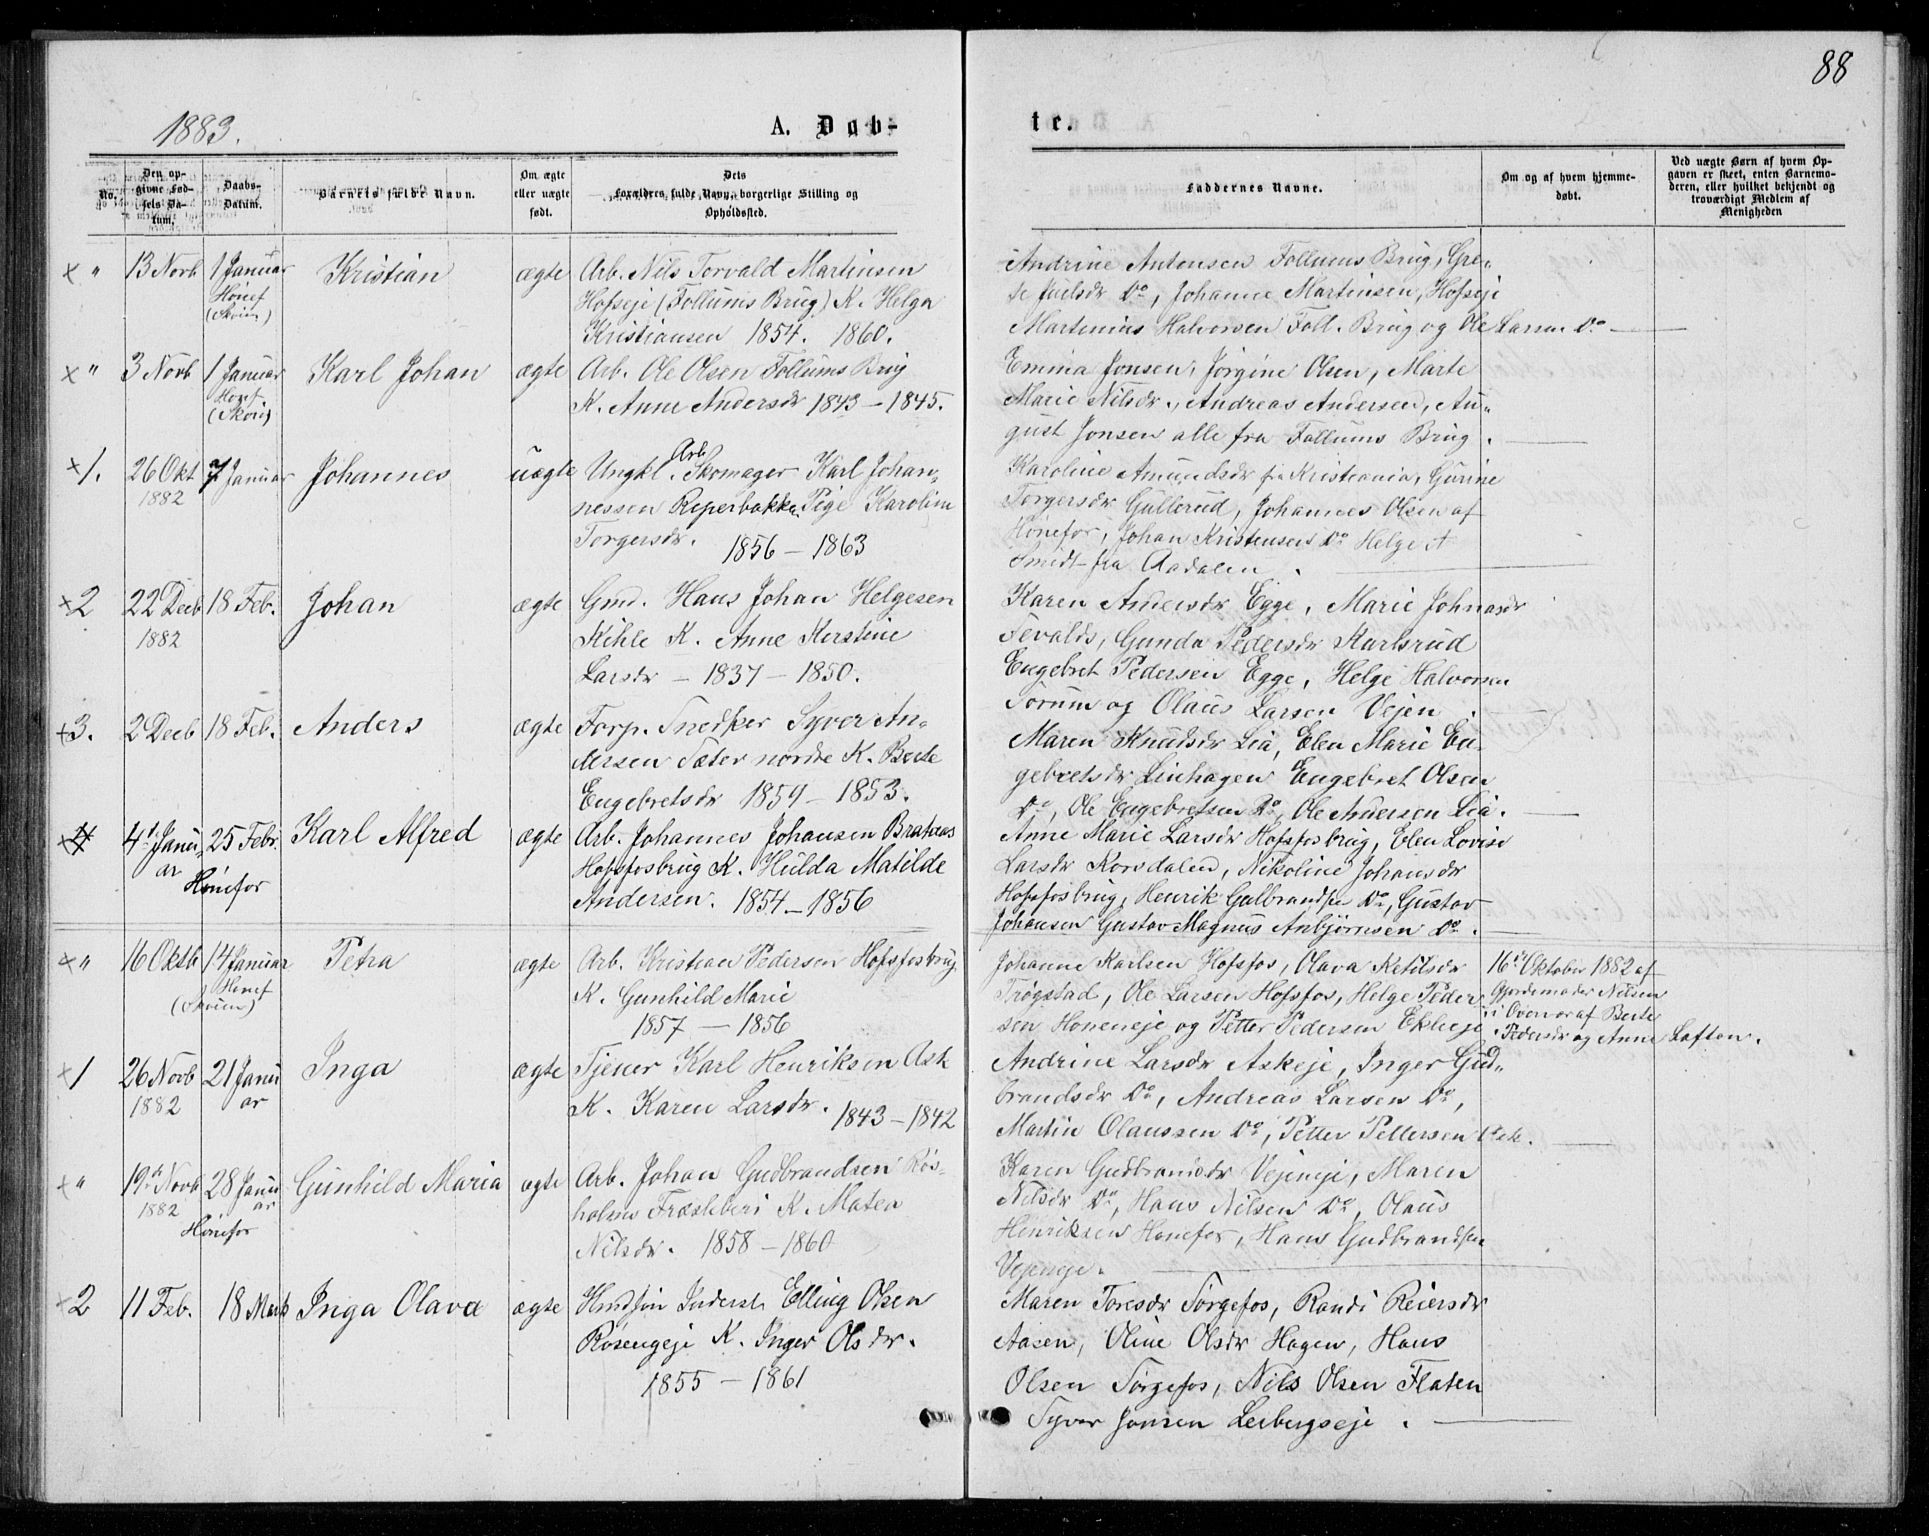 88
1883.
A. Døb-
te.
No.
Den op-
givne Fød-
sels Da-
tum.
Daabs-
Datum.
Barnets fulde Navn.
Om ægte
eller uægte
født.
Dets
Forældres fulde Navn, borgerlige Stilling og
Opholdssted.
Faddernes Navne.
Om og af hvem hjemme-
døbt.
Ved uægte Børn af hvem Op-
gaven er skeet, enten Barnemo-
deren, eller hvilket bekjendt og
troværdigt Medlem af
Menigheden
× " 13 Novb 1 Januar Kristian ægte Arb. Nils Torvald Martinsen
Hønef Hofseje (Follums Brug) K. Helga
(Skoien) Kristiansen 1854. 1860.
Andrine Antonsen Follums Brug, Gre-
te Juelsdr Do, Johanne Martinsen, Hofseje
Martinius Halvorsen Foll. Brug og Ole Larsen Do
× " 3 Novb 1 Januar Karl Johan ægte Arb. Ole Olsen Follums Brug
Honef K. Anne Andersdr 1843 – 1845.
(Skoie)
Emma Jonsen, Jørgine Olsen, Marte
Marie Nilsdr., Andreas Andersen, Au-
gust Jonsen alle fra Follums Brug.
× 1. 26 Okt 7 Januar Johannes uægte Ungkl. Arb Skomager Karl Johan-
1882 nessen Reperbakken Pige Karoline
Torgersdr. 1856 – 1863
Karoline Amundsdr fra Kristiania, Gurine
Torgersdr Gullerud, Johannes Olsen af
Hønefos, Johan Kristensen Do Helge A
Smidt fra Aadalen.
× 2 22 Decb 18 Feb. Johan ægte Gmd. Hans Johan Helgesen
1882 Kihle K. Anne Kerstine
Larsdr – 1837 – 1850.
Karen Andersdr Egge, Marie Johnsdr
Tevalds, Gunda Pedersdr Karlsrud
Engebret Pedersen Egge, Helge Halvorsen
Sørum og Olaus Larsen Vejen.
× 3. 2 Decb 18 Feb. Anders ægte Forp. Snedker Syver An-
dersen Sæter nordre K. Berte
Engebretsdr 1859 – 1853.
Maren Knudsdr Lia, Elen Marie En-
gebretsdr Linhagen Engebret Olsen
Do, Ole Engebretsen Do, Ole Andersen Lia.
× 4 4d Janu- 25 Febr. Karl Alfred ægte Arb. Johannes Johansen Brataas
ar Hønefos Hofsfosbrug K. Hulda Matilde
Andersen. 1854 – 1856
Anne Marie Larsdr Hofsfosbrug, Elen Lovise
Larsdr Korsdalen, Nikoline Johansdr
Hofsfosbrug, Henrik Gulbrandsen Do, Gustav
Johansen Gustav Magnus Anbjørnsen Do.
× " 16 Oktb 14 Januar Petra ægte Arb. Kristian Pedersen Hofsfosbrug
Hønef K. Gunhild Marie
(Skoien) 1857 – 1856
Johanne Karlsen Hofsfos, Olava Ketilsdr
Trøgstad, Ole Larsen Hofsfos, Helge Peder
sen Honeneje og Petter Pedersen Ekleeje
16de Oktober 1882 af
Gjordemoder Nilsen
i Overvær af Berte
Pedersdr og Anne Loften.
× 1 26 Novb 21 Janu Inga ægte Tjener Karl Henriksen Ask
1882 ar K. Karen Larsdr. 1843 – 1842
Andrine Larsdr Askeje, Inger Gud-
brandsdr Do, Andreas Larsen Do,
Martin Olaussen Do, Petter Pettersen Ask.
× " 19d Novb 28 Janu Gunhild Maria ægte Arb. Johan Gudbrandsen Røs-
1882 ar holms K. Maten
Hønefos Nilsdr. 1858 – 1860
Karen Gudbrandsdr Vejeneje, Maren
Nilsdr Do, Hans Nilsen Do, Olaus
Henriksen Honefos, Hans Gudbrandsen
Vejeneje.
× 2 11 Feb. 18 Marts Inga Olava ægte Inderst. Elling Olsen
Rosengeje K. Inger Olsdr.
1855 – 1861
Maren Toresdr Sørgefos, Randi Reiersdr
Aasen, Oline Olsdr Hagen, Hans
Olsen Sørgefos, Nils Olsen Flaten
Syver Jonsen Leebergseje.